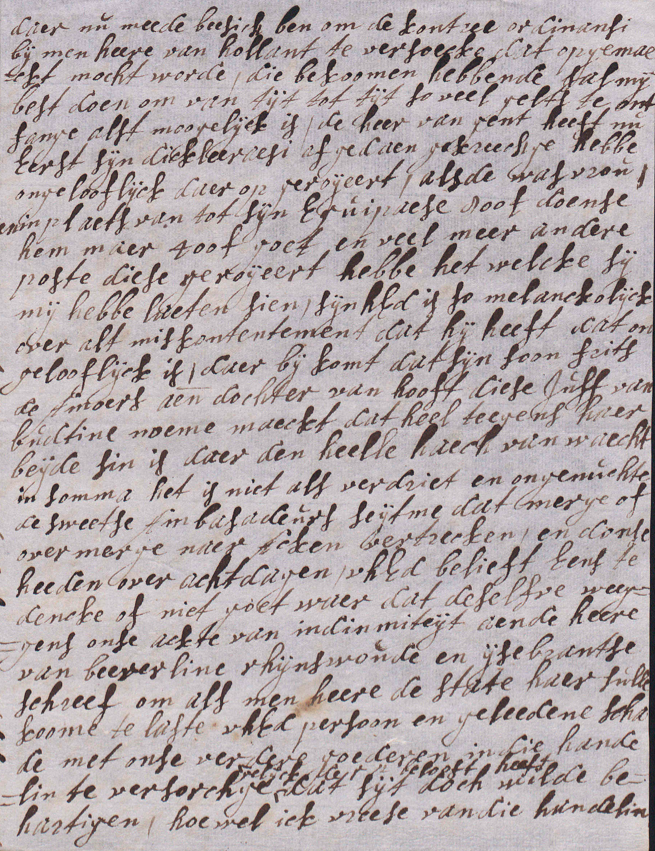 daer nu meede beesich ben om de kontree ordinansi
bij men heere van hollant te versoecke dat opgemae
ckt mocht worde, die bekoomen hebbende sal mij
best doen om van tijt tot tijt so veel gelts te ont
fange alst moogelijck is, de heer van gent heeft nu
eerst sijn dickleeraesi afgedaen gekreechge hebbe
ongelooflijck daer op geroijeert, alsde wasvrou,
en inplaets van tot sijn Equipaese doense
hem maer goet en veel meer andere
poste diese geroijeert hebbe het welcke sij
mij hebbe laeten sien, sijn hEd is so melanckolijck
over alt miskontentement dat hij heeft dat on
gelooflijck is, daer bij komt dat sijn soon frits
de amoers aen dochter van hooft diese Juff van
budtine noeme maeckt dat heel teegens haer
beijde sin is daer den heelle haech van waecht
in somma het is niet als verdriet en ongenuchte
de sweetse ambasadeurs seijtme dat merge of
overmerge naer aken vertrecken, en donse
heeden over acht dagen, uhEd belieft eens te
dencke of niet goet waer dat deselfve wee
gens onse ackte van indinmiteijt aende heere
van beeverline rhijnswoude en ijsebrantse
schreef om als men heere de state haer sulle
koome te laste uhEd persoon en geleedene scha
de met onse verdere goederen indie hande
lin te versorchge gelijck beloost heeft dat sijt doch wilde be
hartigen, hoewel ick vreese vandie handelin